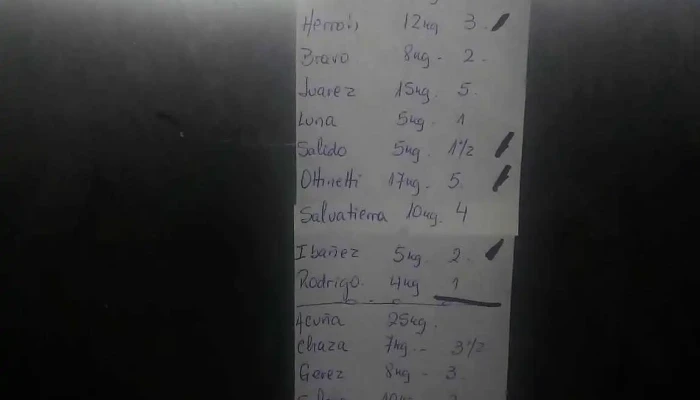 Herrois 12kg 3.
Bravo 8kg - 2.
Juarez 15kg. 5.
Luna 5kg. 1
Salcdo 5kg. 1 1/2
Ottinetti 17kg - 5.
Salvatierra 10kg. 4
Ibañez 5kg. 2.
Rodrigo. 4kg 1
Acuña 25kg.
Chaza 7kg - - 3 1/2
Gerez 8kg - 3.
10kg